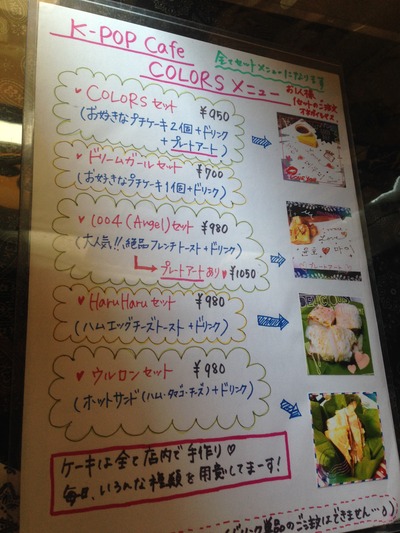 K-POP Cafe
COLORS メニュー
全てセットメニューになります
お1人様
1セットのご注文
♥ COLORS セット ¥950
(お好きなプチケーキ2個+ドリンク
+プレートアート)
♥ドリームガールセット ¥700
(お好きなプチケーキ1個+ドリンク)
♥ 1004 (Angel) セット ¥980
(大人気!!絶品フレンチトースト+ドリンク)
プレートアートあり♥¥1050
♥ HaruHaru セット ¥980
(ハムエッグチーズトースト+ドリンク)
♥ ウルロンセット ¥980
(ホットサンド(ハム・タマゴ・チーズ)+ドリンク)
ケーキは全て店内で手作り♡
毎日、いろんな種類を用意してまーす!
ドリンク単品のご注文はできません…